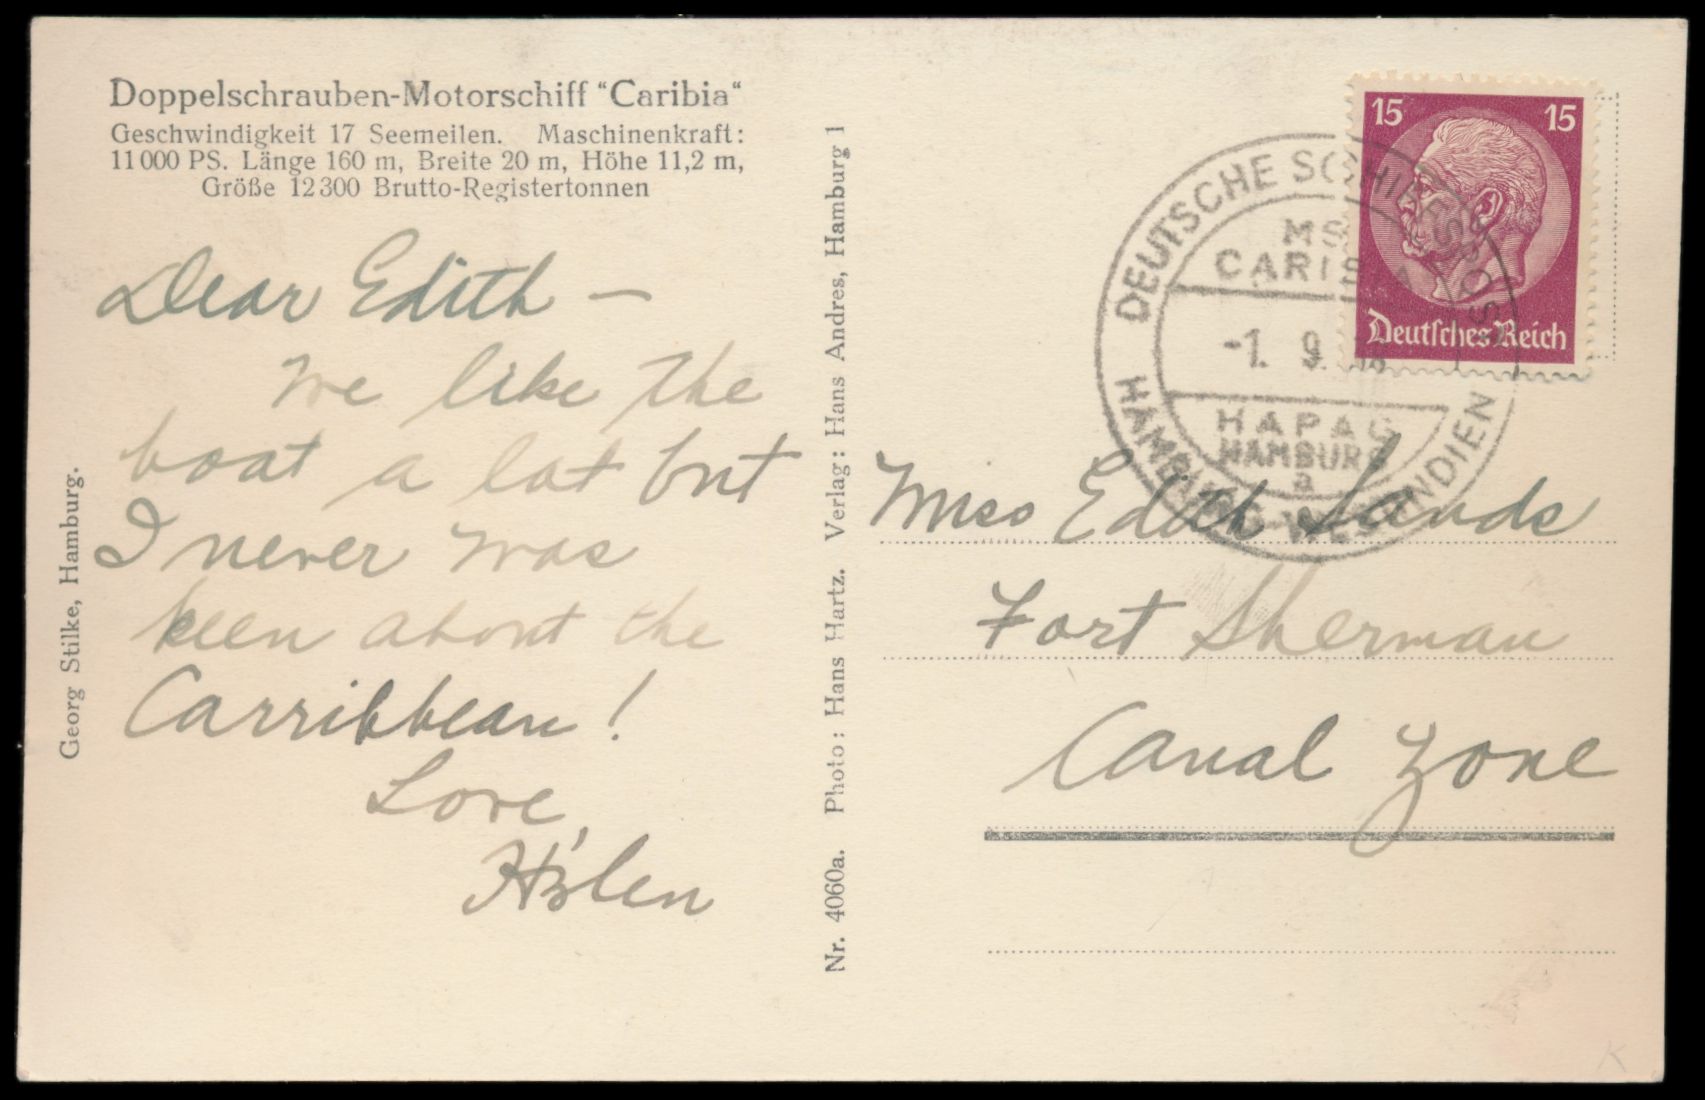 Doppelschrauben-Motorschiff "Caribia"
Geschwindigkeit 17 Seemeilen. Maschinenkraft:
11000 PS. Länge 160 m, Breite 20 m, Höhe 11,2 m,
Größe 12300 Brutto-Registertonnen
Dear Edith —
We like the
boat a lot but
I never was
keen about the
Carribbean!
Love,
Helen
Georg Stilke, Hamburg.
Nr. 4060a. Photo: Hans Hartz. Verlag: Hans Andres, Hamburg 1
15 15
Deutsches Reich
DEUTSCHE SCHIFFSPOST
MS
CARIBIA
-1. 9.
HAPAG
HAMBURG
a
HAMBURG-WESTINDIEN
Miss Edith Sands
Fort Sherman
Canal Zone
K